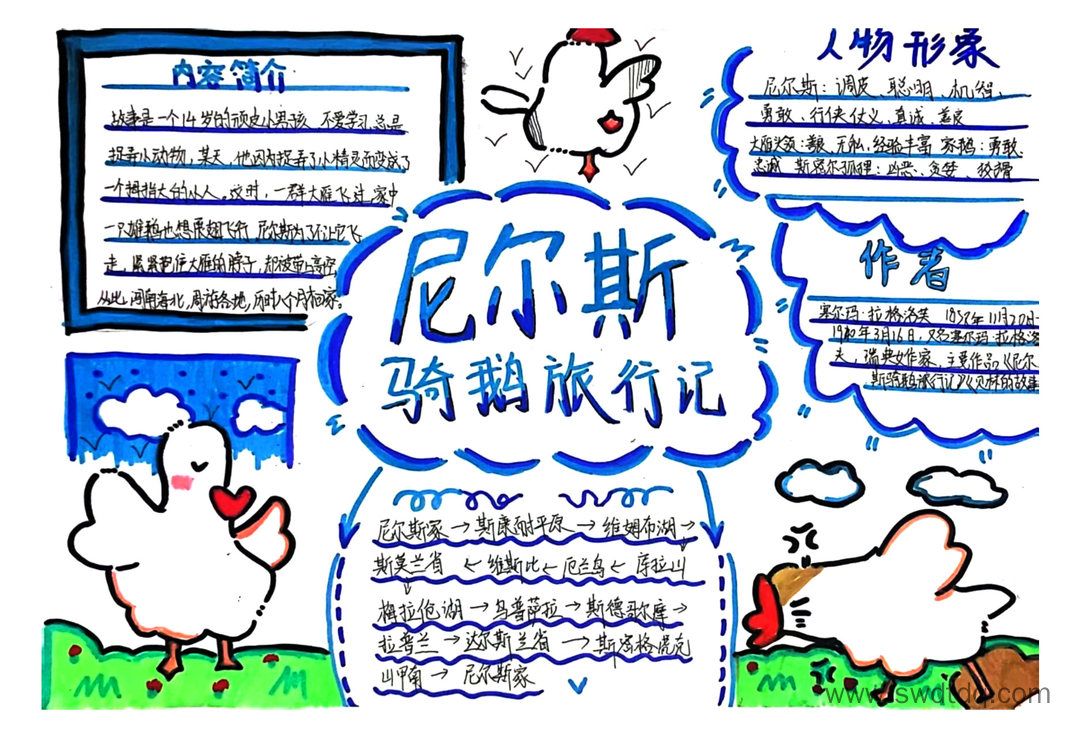 内容简介
故事是一个14岁的顽皮小男孩，不爱学习总是
捉弄小动物，某天，他因为捉弄了小精灵而变成了
一个拇指大的小人。这时，一群大雁飞过，家中
一只雄鹅也想展翅飞行 尼尔斯为了不让它飞
走，紧紧抱住大雁的脖子，却被带上高空，
从此，河南海北，周游各地，历时八个月才回家。
人物形象
尼尔斯：调皮、聪明、机智、
勇敢、行侠仗义、真诚、善良
大雁头领：善良、无私、经验丰富 家鹅：勇敢、
忠诚 斯密尔狐狸：凶恶、贪婪、狡猾
尼尔斯
骑鹅旅行记
作者
塞尔玛·拉格洛芙 1858年11月20日-
1940年3月16日，又名塞尔玛·拉格洛
夫，瑞典女作家，主要作品《尼尔
斯骑鹅旅行记》《贝林的故事
尼尔斯家→斯康耐平原→维姆布湖→
斯莫兰省←维斯比←厄兰岛←库拉山
梅拉伦湖→乌普萨拉→斯德哥尔摩→
拉普兰→达尔斯兰省→斯密格虎克
山甲角→尼尔斯家
www.swqtdq.com